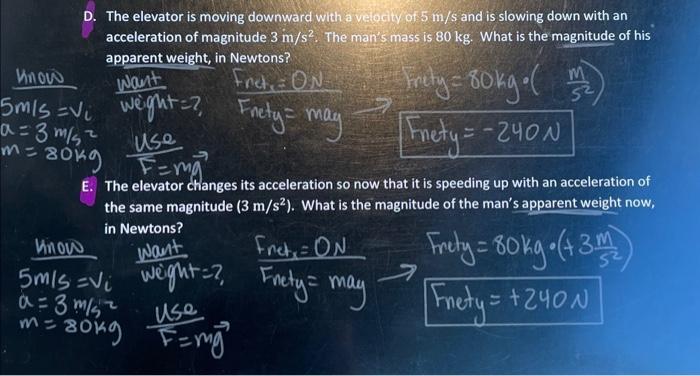 D. The elevator is moving downward with a velocity of 5 m/s and is slowing down with an
acceleration of magnitude 3 m/s². The man's mass is 80 kg. What is the magnitude of his
apparent weight, in Newtons?
Know
5m/s = Vi
a = 3 m/s²
m = 80kg
want
weight = ?
use
F = mg
Fnetₓ = 0N
Fnety = may → Fnety = 80kg • ( m/s²)
Fnety = -240N
E. The elevator changes its acceleration so now that it is speeding up with an acceleration of
the same magnitude (3 m/s²). What is the magnitude of the man's apparent weight now,
in Newtons?
Know
5m/s = Vi
a = 3 m/s²
m = 80kg
want
weight = ?
use
F = mg
Fnetₓ = 0N
Fnety = may → Fnety = 80kg • (+3 m/s²)
Fnety = +240N